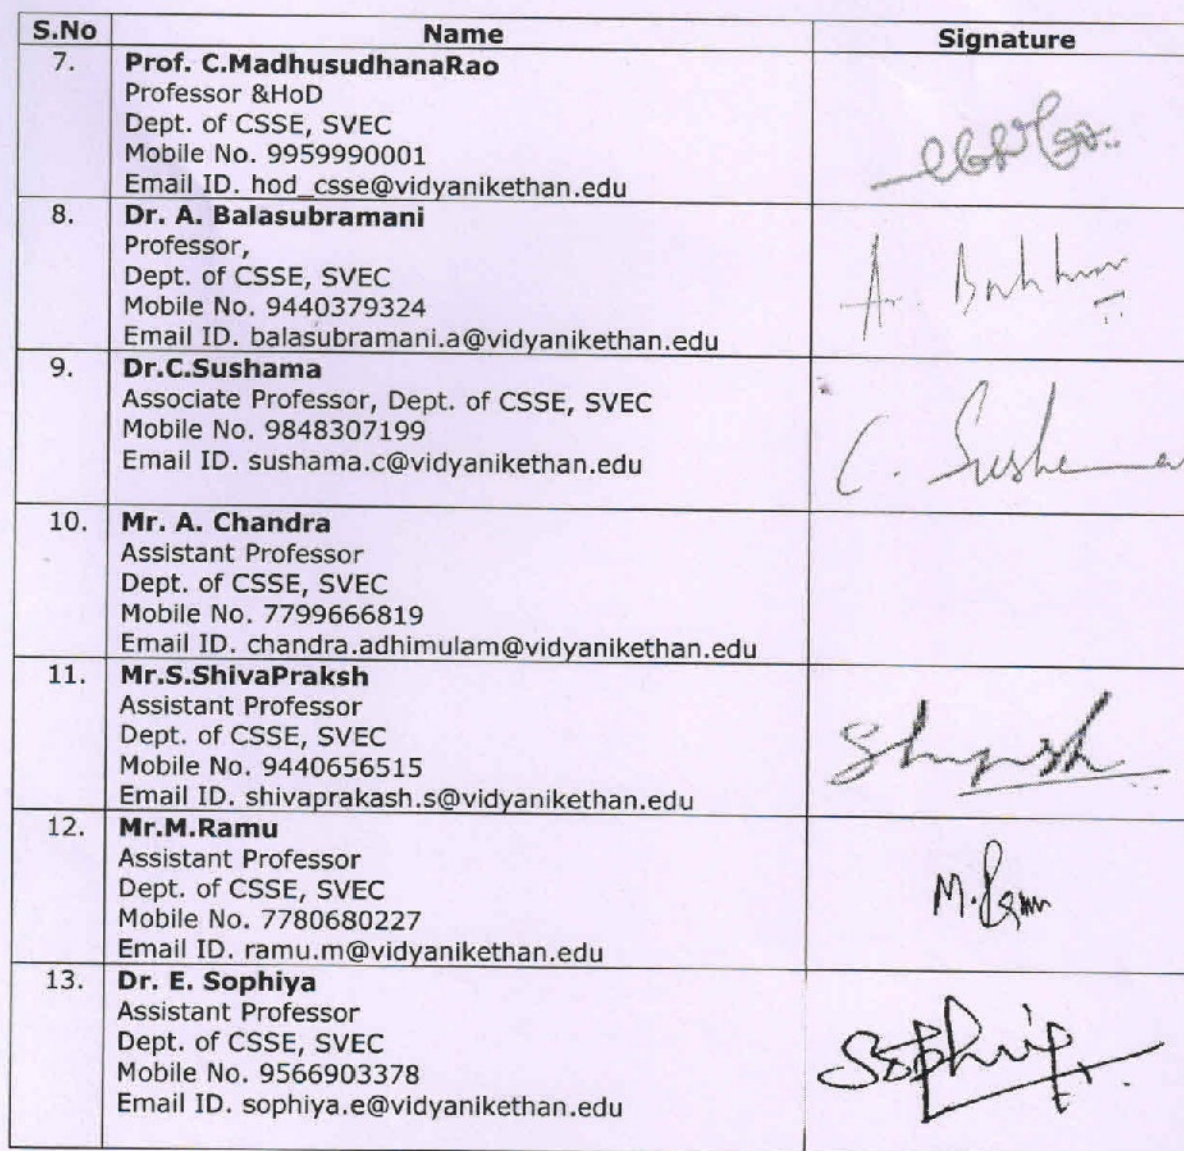 S.No Name Signature
7. Prof. C.MadhusudhanaRao
Professor &HoD
Dept. of CSSE, SVEC
Mobile No. 9959990001
Email ID. hod_csse@vidyanikethan.edu
8. Dr. A. Balasubramani
Professor,
Dept. of CSSE, SVEC
Mobile No. 9440379324
Email ID. balasubramani.a@vidyanikethan.edu
9. Dr.C.Sushama
Associate Professor, Dept. of CSSE, SVEC
Mobile No. 9848307199
Email ID. sushama.c@vidyanikethan.edu
C. Sushama
10. Mr. A. Chandra
Assistant Professor
Dept. of CSSE, SVEC
Mobile No. 7799666819
Email ID. chandra.adhimulam@vidyanikethan.edu
11. Mr.S.ShivaPraksh
Assistant Professor
Dept. of CSSE, SVEC
Mobile No. 9440656515
Email ID. shivaprakash.s@vidyanikethan.edu
12. Mr.M.Ramu
Assistant Professor
Dept. of CSSE, SVEC
Mobile No. 7780680227
Email ID. ramu.m@vidyanikethan.edu
M. Ramu
13. Dr. E. Sophiya
Assistant Professor
Dept. of CSSE, SVEC
Mobile No. 9566903378
Email ID. sophiya.e@vidyanikethan.edu
Sophiya